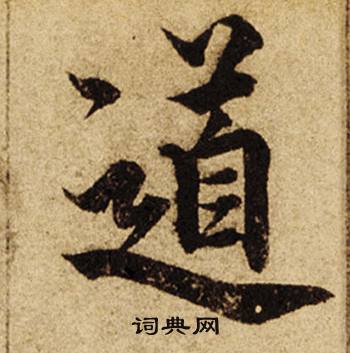 道
词典网